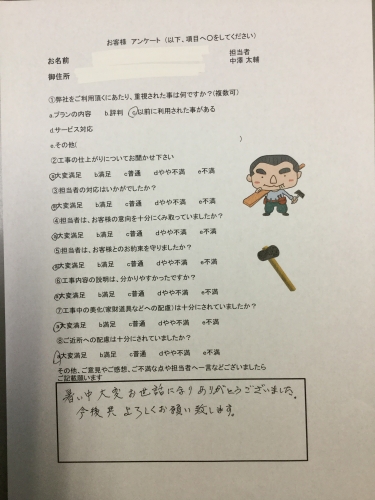 お客様 アンケート (以下、項目へ○をしてください)
担当者
お名前
中澤 太輔
御住所
①弊社をご利用頂くにあたり、重視された事は何ですか?(複数可)
a.プランの内容 b.評判 c.以前に利用された事がある
d.サービス対応
e.その他( )
②工事の仕上がりについてお聞かせ下さい
a大変満足 b満足 c普通 dやや不満 e不満
③担当者の対応はいかがでしたか?
a大変満足 b満足 c普通 dやや不満 e不満
④担当者は、お客様の意向を十分にくみ取っていましたか?
a大変満足 b満足 c普通 dやや不満 e不満
⑤担当者は、お客様とのお約束を守りましたか?
a大変満足 b満足 c普通 dやや不満 e不満
⑥工事内容の説明は、分かりやすかったですか?
a大変満足 b満足 c普通 dやや不満 e不満
⑦工事中の美化(家財道具などへの配慮)は十分にされていましたか?
a大変満足 b満足 c普通 dやや不満 e不満
⑧ご近所への配慮は十分にされていましたか?
a大変満足 b満足 c普通 dやや不満 e不満
その他、ご意見やご感想、ご不満な点や担当者へ一言などございましたら
ご記載願います
暑い中大変お世話になりありがとうございました。
今後共よろしくお願い致します。